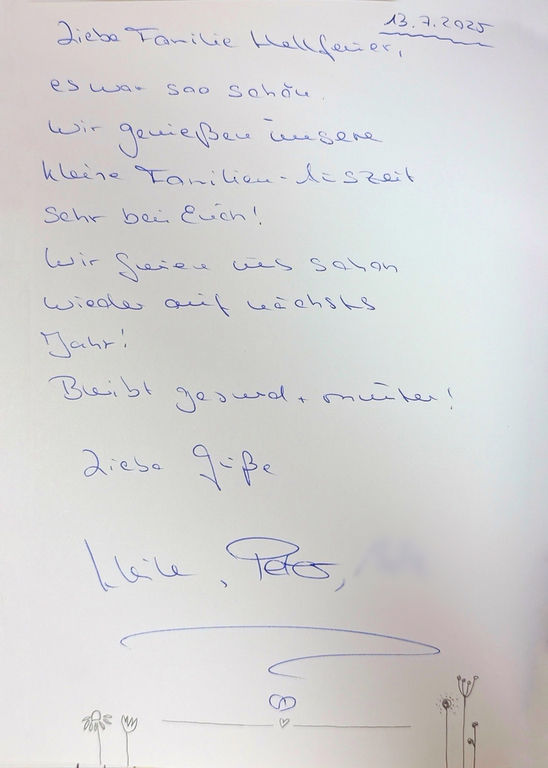 13.7.2025
Liebe Familie Hellfeuer,
es war soo schön.
Wir genießen unsere
kleine Familien-Auszeit
sehr bei Euch!
Wir freuen uns schon
wieder auf nächstes
Jahr!
Bleibt gesund + munter!
Liebe Grüße
Peter,